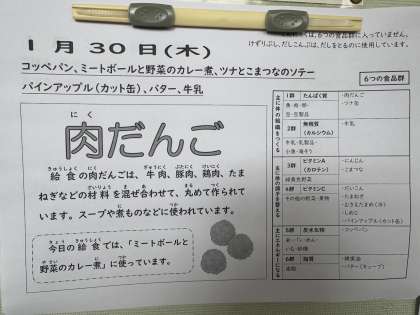 1月30日(木)
コッペパン、ミートボールと野菜のカレー煮、ツナとこまつなのソテー
パインアップル(カット缶)、バター、牛乳
は、6つの食品群に入っていません。
けずりぶし、だしこんぶは、だしをとるのに使用しています。
にく
肉だんご
きゅうしょく ぎゅうにく ぶたにく けいにく
給食の肉だんごは、牛肉、豚肉、鶏肉、たま
ざいりょう ま まる つく
ねぎなどの材料を混ぜ合わせて、丸めて作られて
います。スープや煮ものなどに使われています。
きょう きゅうしょく
今日の給食では、「ミートボールと
やさい に つか
野菜のカレー煮」に使っています。
6つの食品群
主に体の組織をつくる
1群 たんぱく質
魚・肉・卵・
豆・豆製品
・肉だんご
・ツナ缶
2群 無機質
(カルシウム)
牛乳・乳製品・
小魚・海そう
・牛乳
3群 ビタミンA
(カロテン)
緑黄色野菜
・にんじん
・こまつな
4群 ビタミンC
その他の野菜・果物
・だいこん
・たまねぎ
・むきえだまめ(冷)
・しめじ
・パインアップル(カット缶)
5群 炭水化物
米・パン・めん・
いも・砂糖
・コッペパン
6群 脂質
油脂
・バター(キューブ)